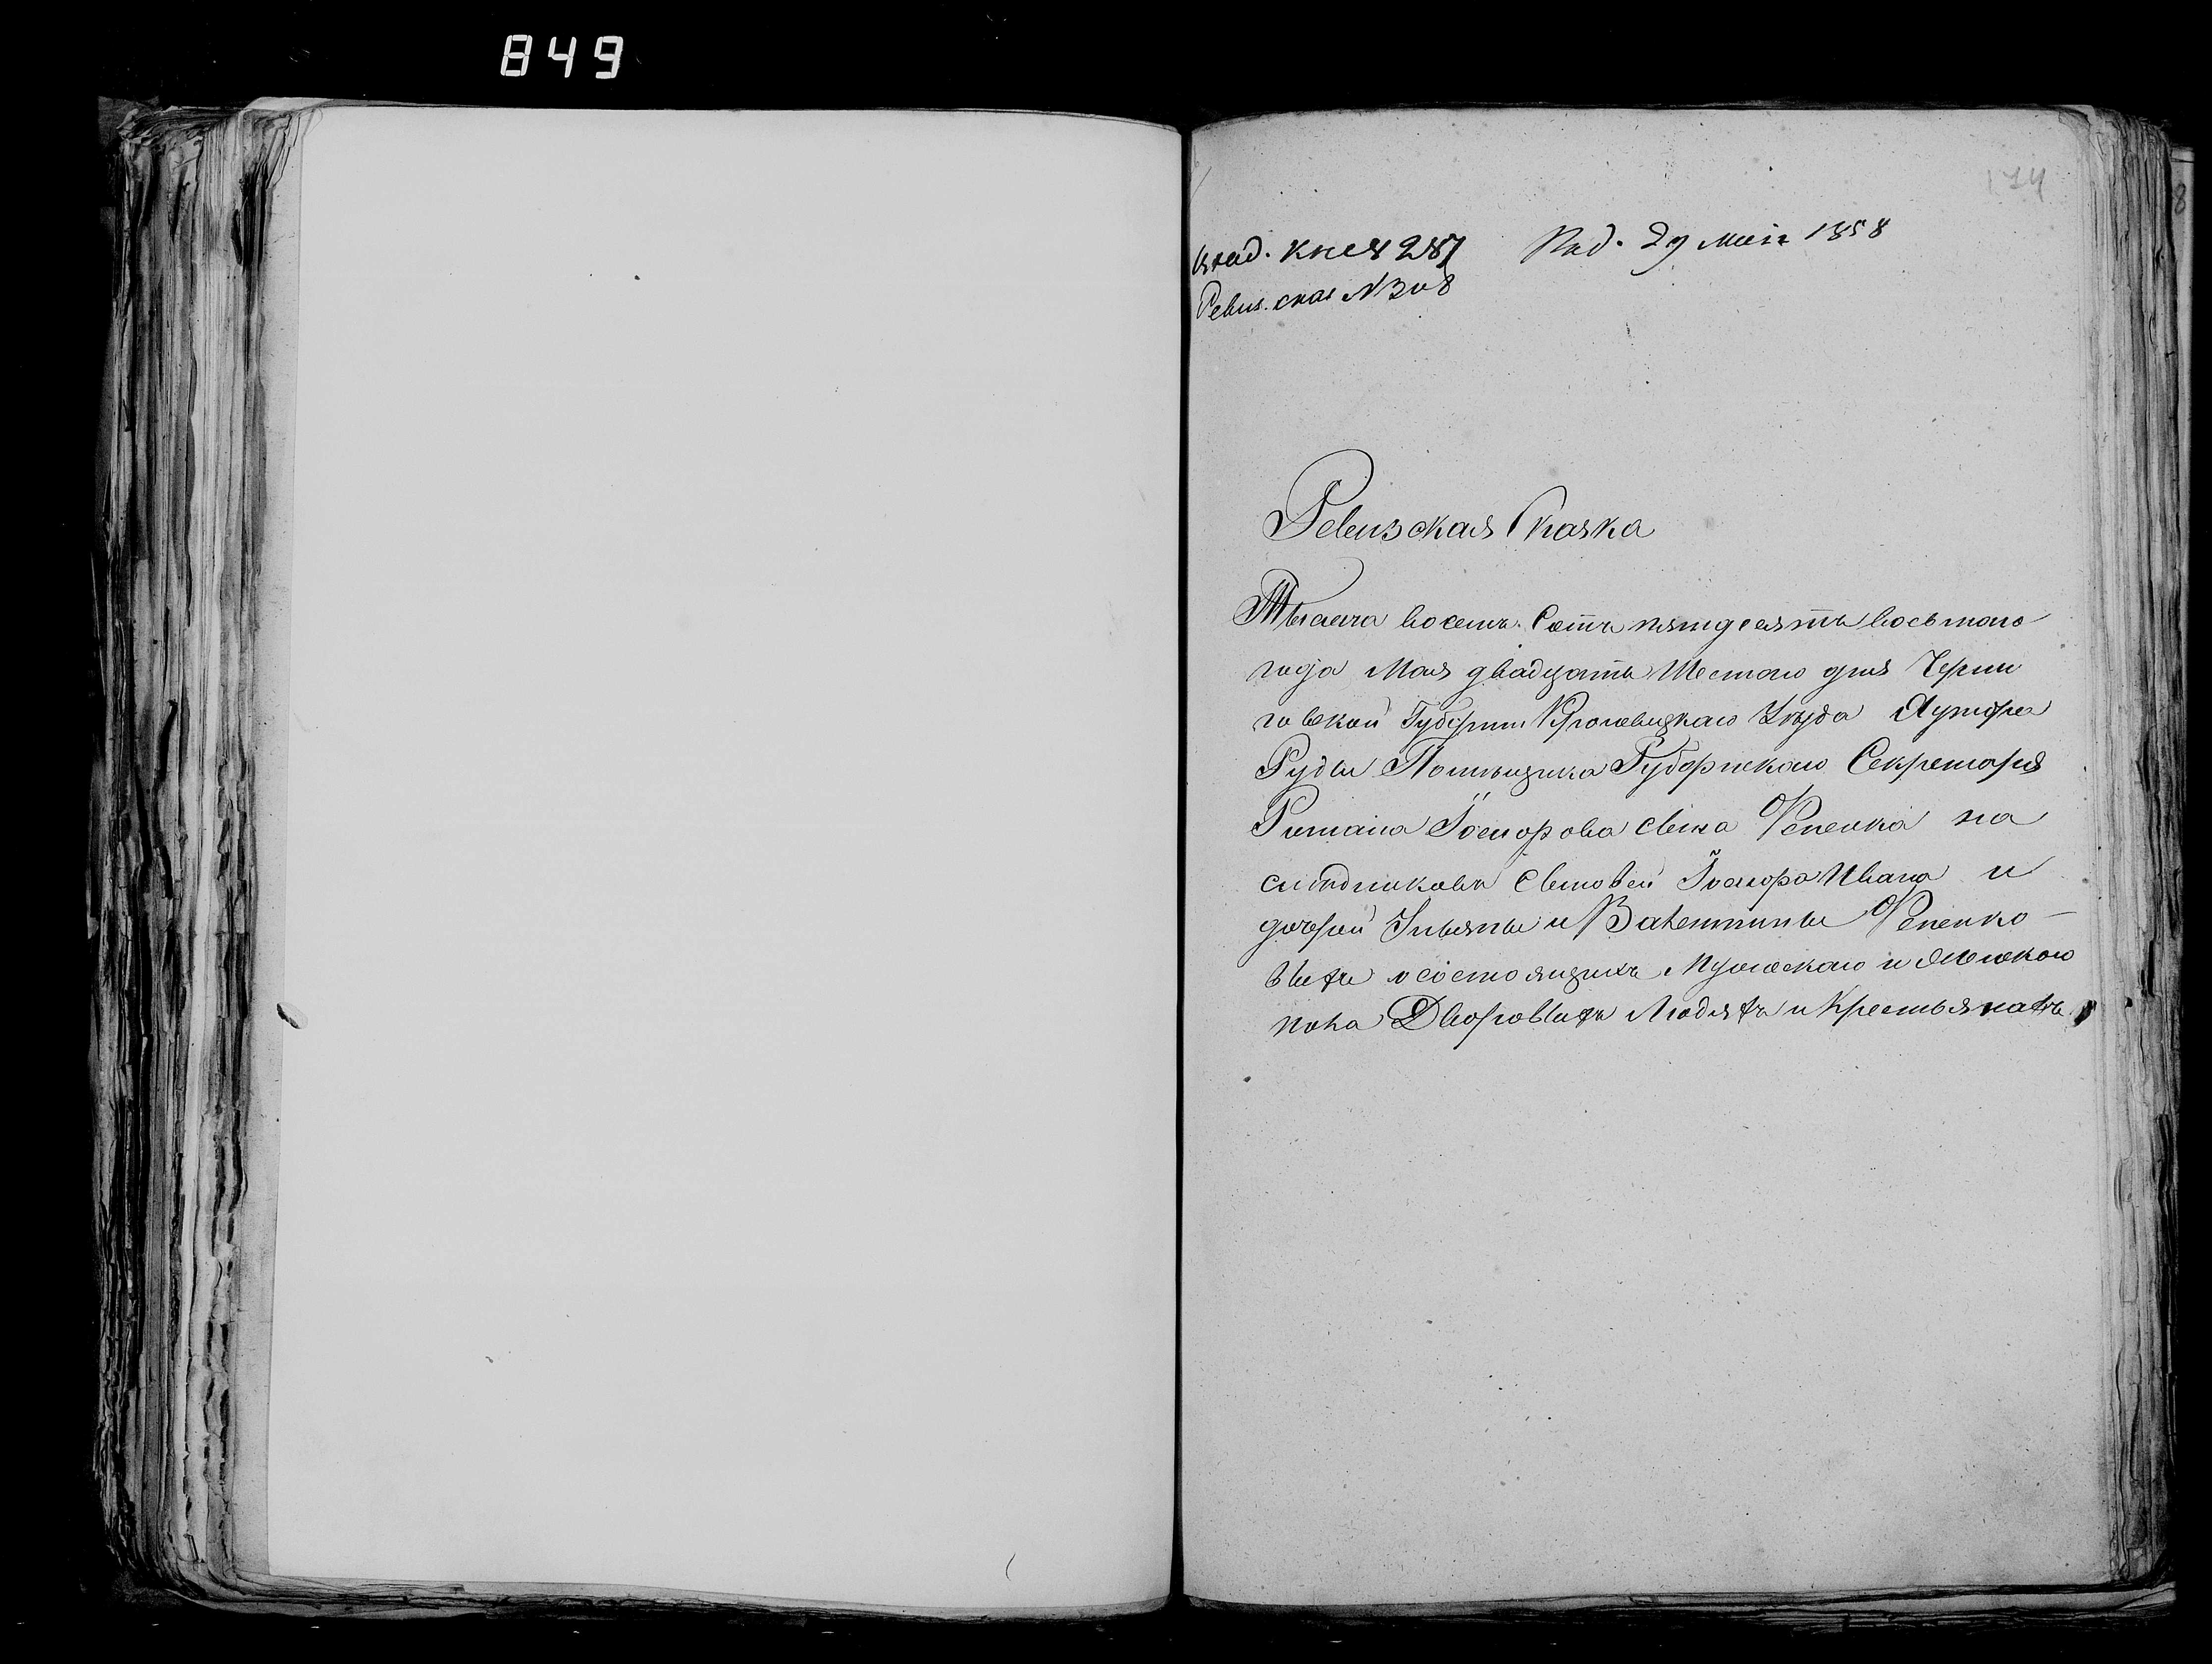 849
174
Под. 29 Мая 1858
Ревиз. сказ. № 308
Ревизская Сказка
Тысяча восемь Сотъ пятдесятъ восьмого
года Мая двадцать Шестаго дня Черни
говской Губерніи Кролевецкаго Уезда Хутора
Руды Помѣщика Губернскаго Секретаря
Романа Ѳеодорова сына Репенка на
слѣдниковъ Сыновей Ѳеодора Ивана и
дочерей и Валентины Репенко-
выхъ о состоящихъ Мужескаго и Женскаго
пола Дворовыхъ Людяхъ и Крестьянахъ